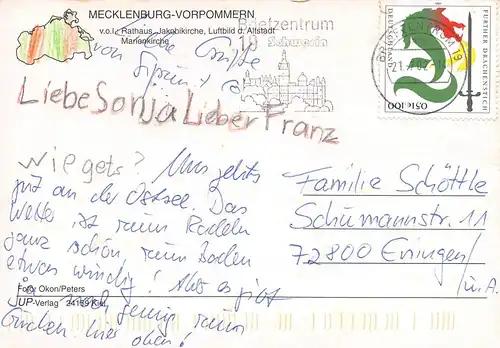 MECKLENBURG-VORPOMMERN
v.o.l.: Rathaus, Jakobikirche, Luftbild d. Altstadt
Marienkirche
Briefzentrum
19
Schwerin
BRIEFZENTRUM 19
DEUTSCHLAND
FURTHER DRACHENSTICH
0,51€ 100
Liebe Sonja Lieber Franz
wie gets? Uns gehts
gut an der Ostsee. Das
Wetter ist zum Radeln
ganz schön, zum Baden
etwas windig! Aber es gibt
ja genug zum
Gucken hier oben!
Familie Schöttle
Schumannstr. 11
72800 Eningen
u.A.
Foto: Okon/Peters
UP-Verlag 24159 Kiel